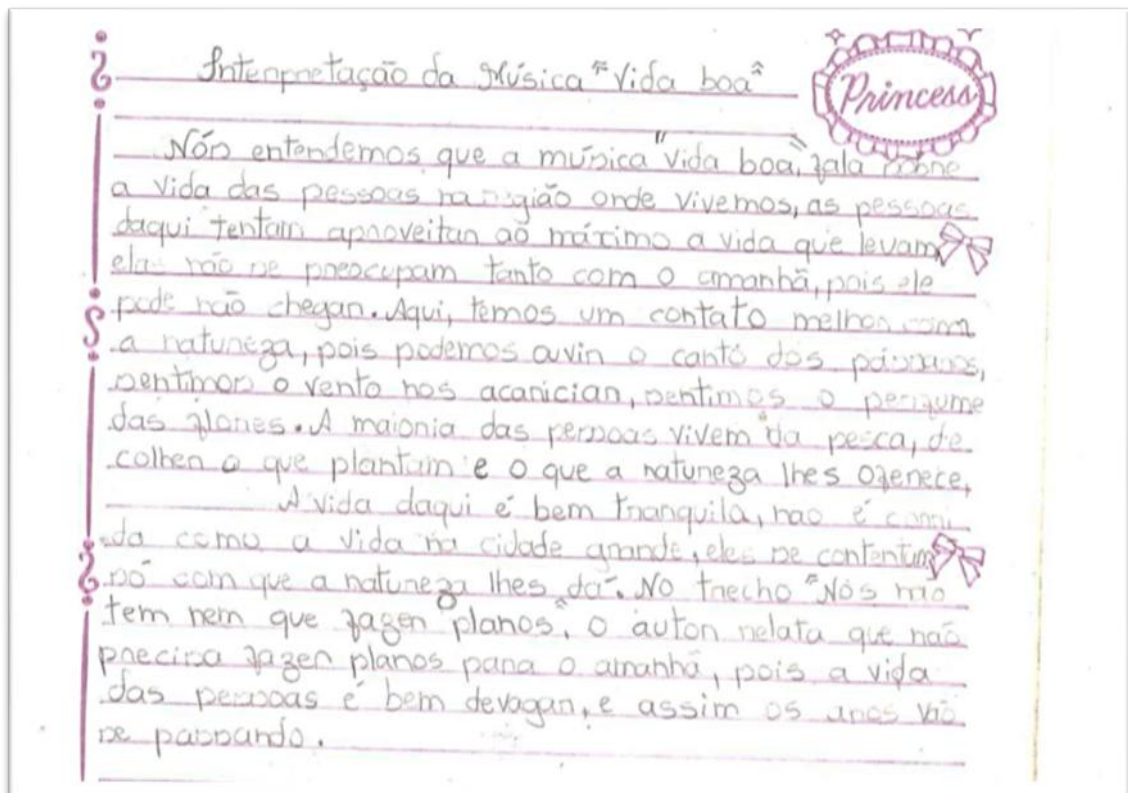 Interpretação da Música "Vida boa"
Princess
Nós entendemos que a música "Vida boa", fala sobre
a vida das pessoas na região onde vivemos, as pessoas
daqui tentam aproveitar ao máximo a vida que levam,
elas não se preocupam tanto com o amanhã, pois ele
pode não chegar. Aqui, temos um contato melhor com
a natureza, pois podemos ouvir o canto dos pássaros,
sentimos o vento nos acariciar, sentimos o perfume
das flores. A maioria das pessoas vivem da pesca, de
colher o que plantam e o que a natureza lhes oferece,
A vida daqui é bem tranquila, nao é corri
da como a vida na cidade grande, eles se contentam
só com que a natureza lhes dá. No trecho "Nós não
tem nem que fazer planos", o autor relata que não
precisa fazer planos para o amanhã, pois a vida
das pessoas é bem devagar, e assim os anos vão
se passando.